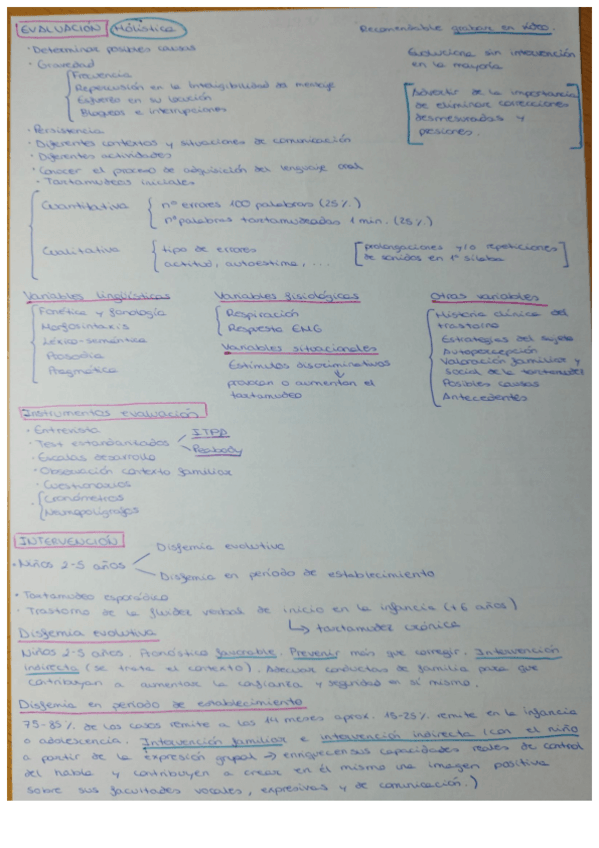 EVALUACIÓN Holística
Recomendable grabar en video.
· Determinar posibles causas
· Gravedad
Frecuencia
Repercusión en la inteligibilidad del mensaje
Esfuerzo en su locución
Bloqueos e interrupciones
Evoluciona sin intervención
en la mayoría
Advertir de la importancia
de eliminar correcciones
desmesuradas y
presiones.
· Persistencia
· Diferentes contextos y situaciones de comunicación
· Diferentes actividades
· Conocer el proceso de adquisición del lenguaje oral
· Tartamudeos iniciales
Cuantitativa
nº errores 100 palabras (25%)
nº palabras tartamudeadas 1 min. (25%)
Cualitativa
tipo de errores
actitud, autoestima, ....
prolongaciones y/o repeticiones
de sonidos en 1ª sílaba
Variables lingüísticas
Fonética y fonología
Morfosintaxis
Léxico-semántica
Prosodia
Pragmática
Variables fisiológicas
Respiración
Respuesta EMG
Variables situacionales
Estímulos discriminativos
provocan o aumentan el
tartamudeo
Otras variables
Historia clínica del
trastorno
Estrategias del sujeto
Autopercepción
Valoración familiar y
social de la tartamudez
Posibles causas
Antecedentes
Instrumentos evaluación
· Entrevista
· Test estandarizados
ITPA
Peabody
· Escalas desarrollo
· Observación contexto familiar
· Cuestionarios
· Cronómetros
Neumopolígrafos
INTERVENCIÓN
· Niños 2-5 años
Disfemia evolutiva
Disfemia en período de establecimiento
· Tartamudeo esporádico
· Trastorno de la fluidez verbal de inicio en la infancia (+6 años)
↳ tartamudez crónica
Disfemia evolutiva
Niños 2-5 años. Pronóstico favorable. Prevenir más que corregir. Intervención
indirecta (se trata el contexto). Adecuar conductas de familia para que
contribuyan a aumentar la confianza y seguridad en sí mismo.
Disfemia en período de establecimiento
75-85% de los casos remite a los 14 meses aprox. 15-25% remite en la infancia
o adolescencia. Intervención familiar e intervención indirecta (con el niño
a partir de la expresión grupal → enriquecen sus capacidades reales de control
del habla y contribuyen a crear en él mismo una imagen positiva
sobre sus facultades vocales, expresivas y de comunicación.)